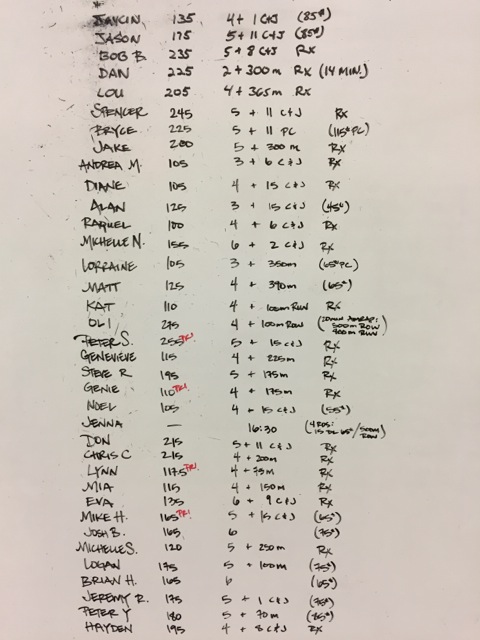 JAYCIN 135 4 + 1 C+J (85#)
JASON 175 5 + 11 C+J (85#)
BOB B. 235 5 + 8 C+J RX
DAN 225 2 + 300 m RX (14 MIN.)
LOU 205 4 + 365m RX
SPENCER 245 5 + 11 C+J RX
BRYCE 225 5 + 11 PC (115# PC)
JAKE 200 5 + 300 m RX
ANDREA M. 105 3 + 6 C+J RX
DIANE 105 4 + 15 C+J RX
ALAN 125 3 + 15 C+J (45#)
RAQUEL 100 4 + 6 C+J RX
MICHELLE N. 155 6 + 2 C+J RX
LORRAINE 105 3 + 350m (65# PC)
MATT 125 4 + 390m (65#)
KAT 110 4 + 100m RUN RX
OLI 215 4 + 100m ROW (20MIN AMRAP: 500m ROW 400m RUN)
PETER S. 255 PR! 5 + 15 C+J RX
GENEVIEVE 115 4 + 225m RX
STEVE R 195 5 + 175m RX
GENIE 110 PR! 4 + 175m RX
NOEL 105 4 + 15 C+J (55#)
JENNA — 16:30 (4 RDS: 15 DL 65# / 500m ROW)
DON 215 5 + 11 C+J RX
CHRIS C 215 4 + 200m RX
LYNN 117.5 PR! 4 + 75m RX
MIA 115 4 + 150m RX
EVA 135 6 + 9 C+J RX
MIKE H. 165 PR! 5 + 15 C+J (65#)
JOSH B. 165 6 (75#)
MICHELLE S. 120 5 + 250m RX
LOGAN 175 5 + 100m (75#)
BRIAN H. 165 6 (65#)
JEREMY R. 175 5 + 1 C+J (75#)
PETER Y 180 5 + 70m (85#)
HAYDEN 195 4 + 8 C+J RX